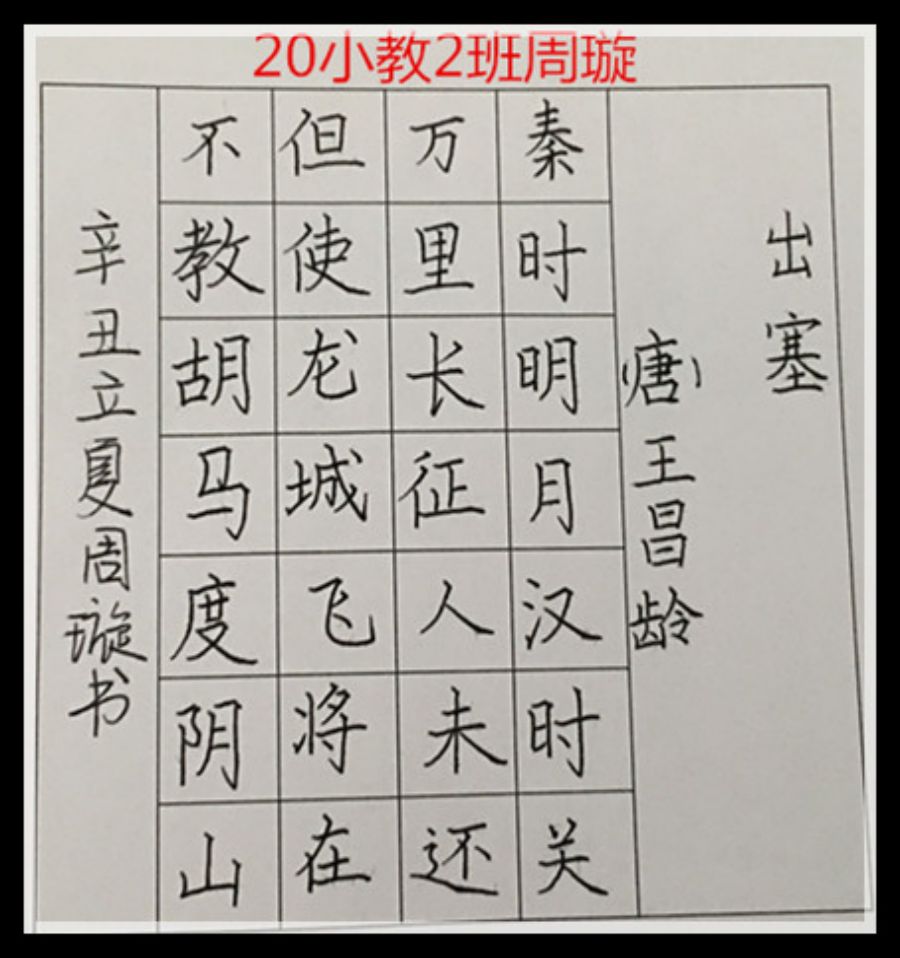 20小教2班周璇
出塞
(唐)王昌龄
秦时明月汉时关
万里长征人未还
但使龙城飞将在
不教胡马度阴山
辛丑立夏周璇书